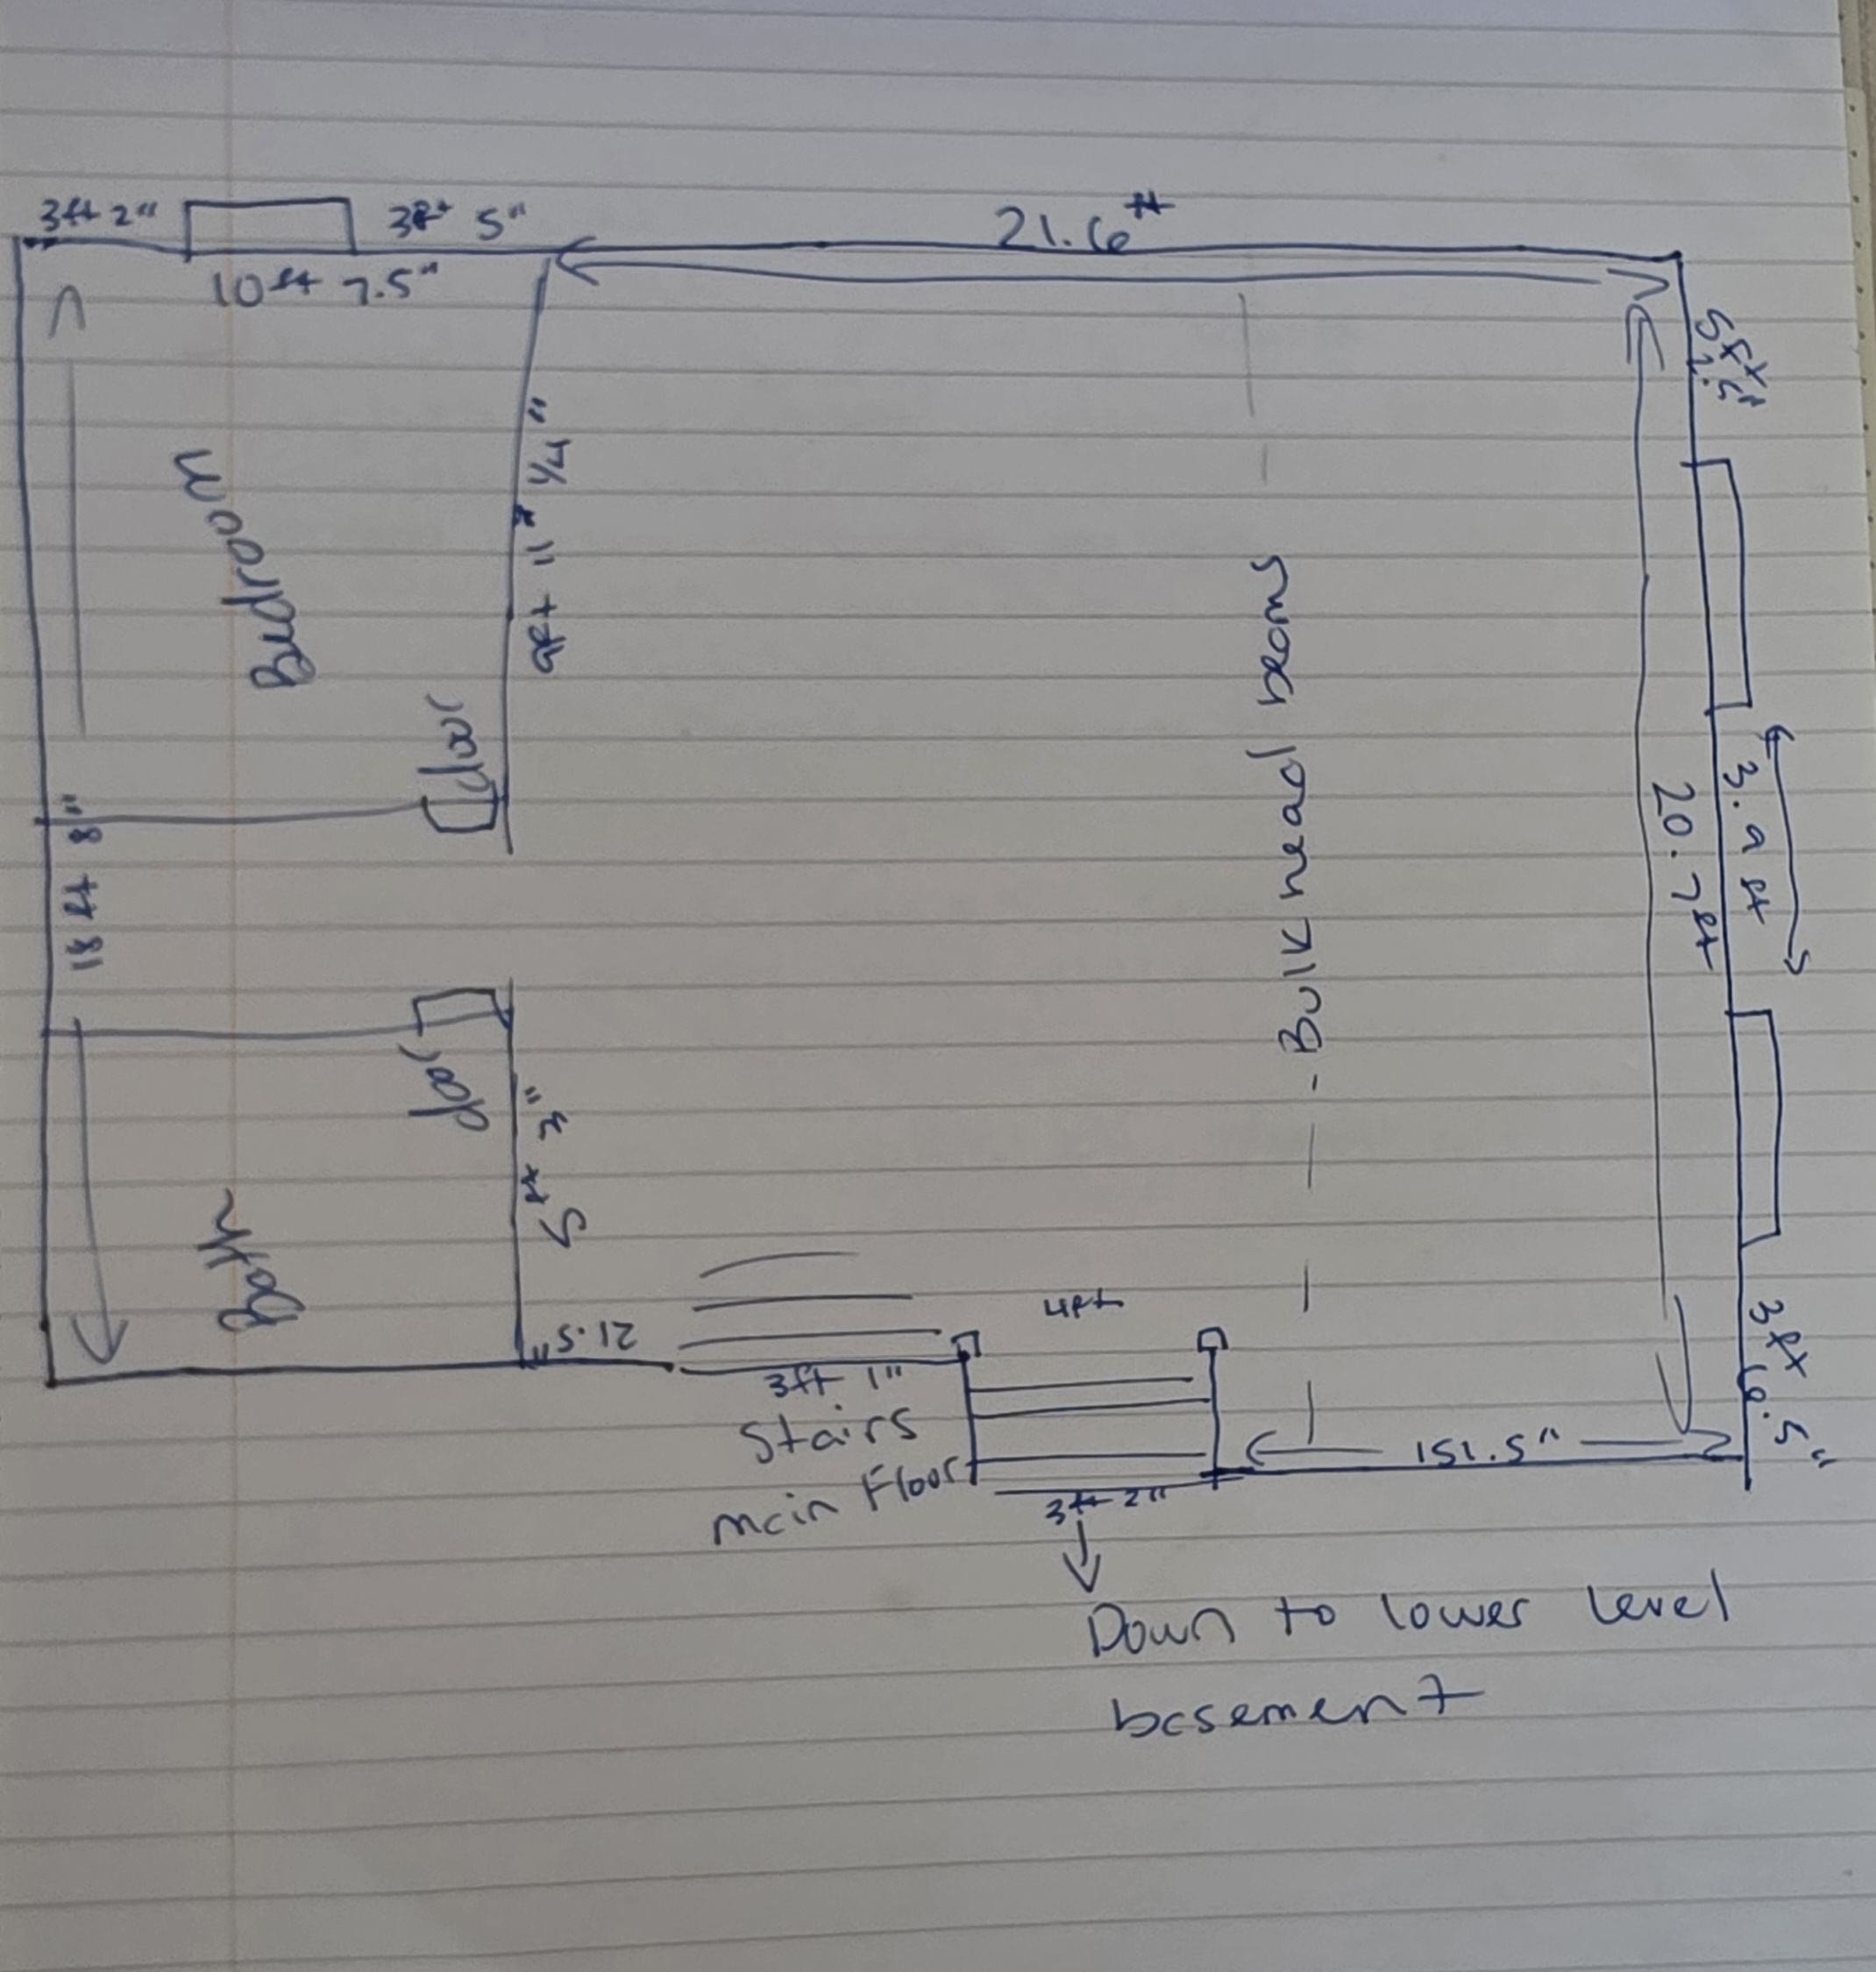 3ft 2"
3ft 5"
21.6ft
10ft 7.5"
5ft
2.5"
Bedroom
9ft 11" 1/4"
door
18ft 8"
Bulk head beams
3.9ft
20.7ft
door
5ft 3"
Bath
21.5"
4ft
3ft 1"
Stairs
main Floor
3ft 2"
151.5"
3ft 6.5"
Down to lower level
basement